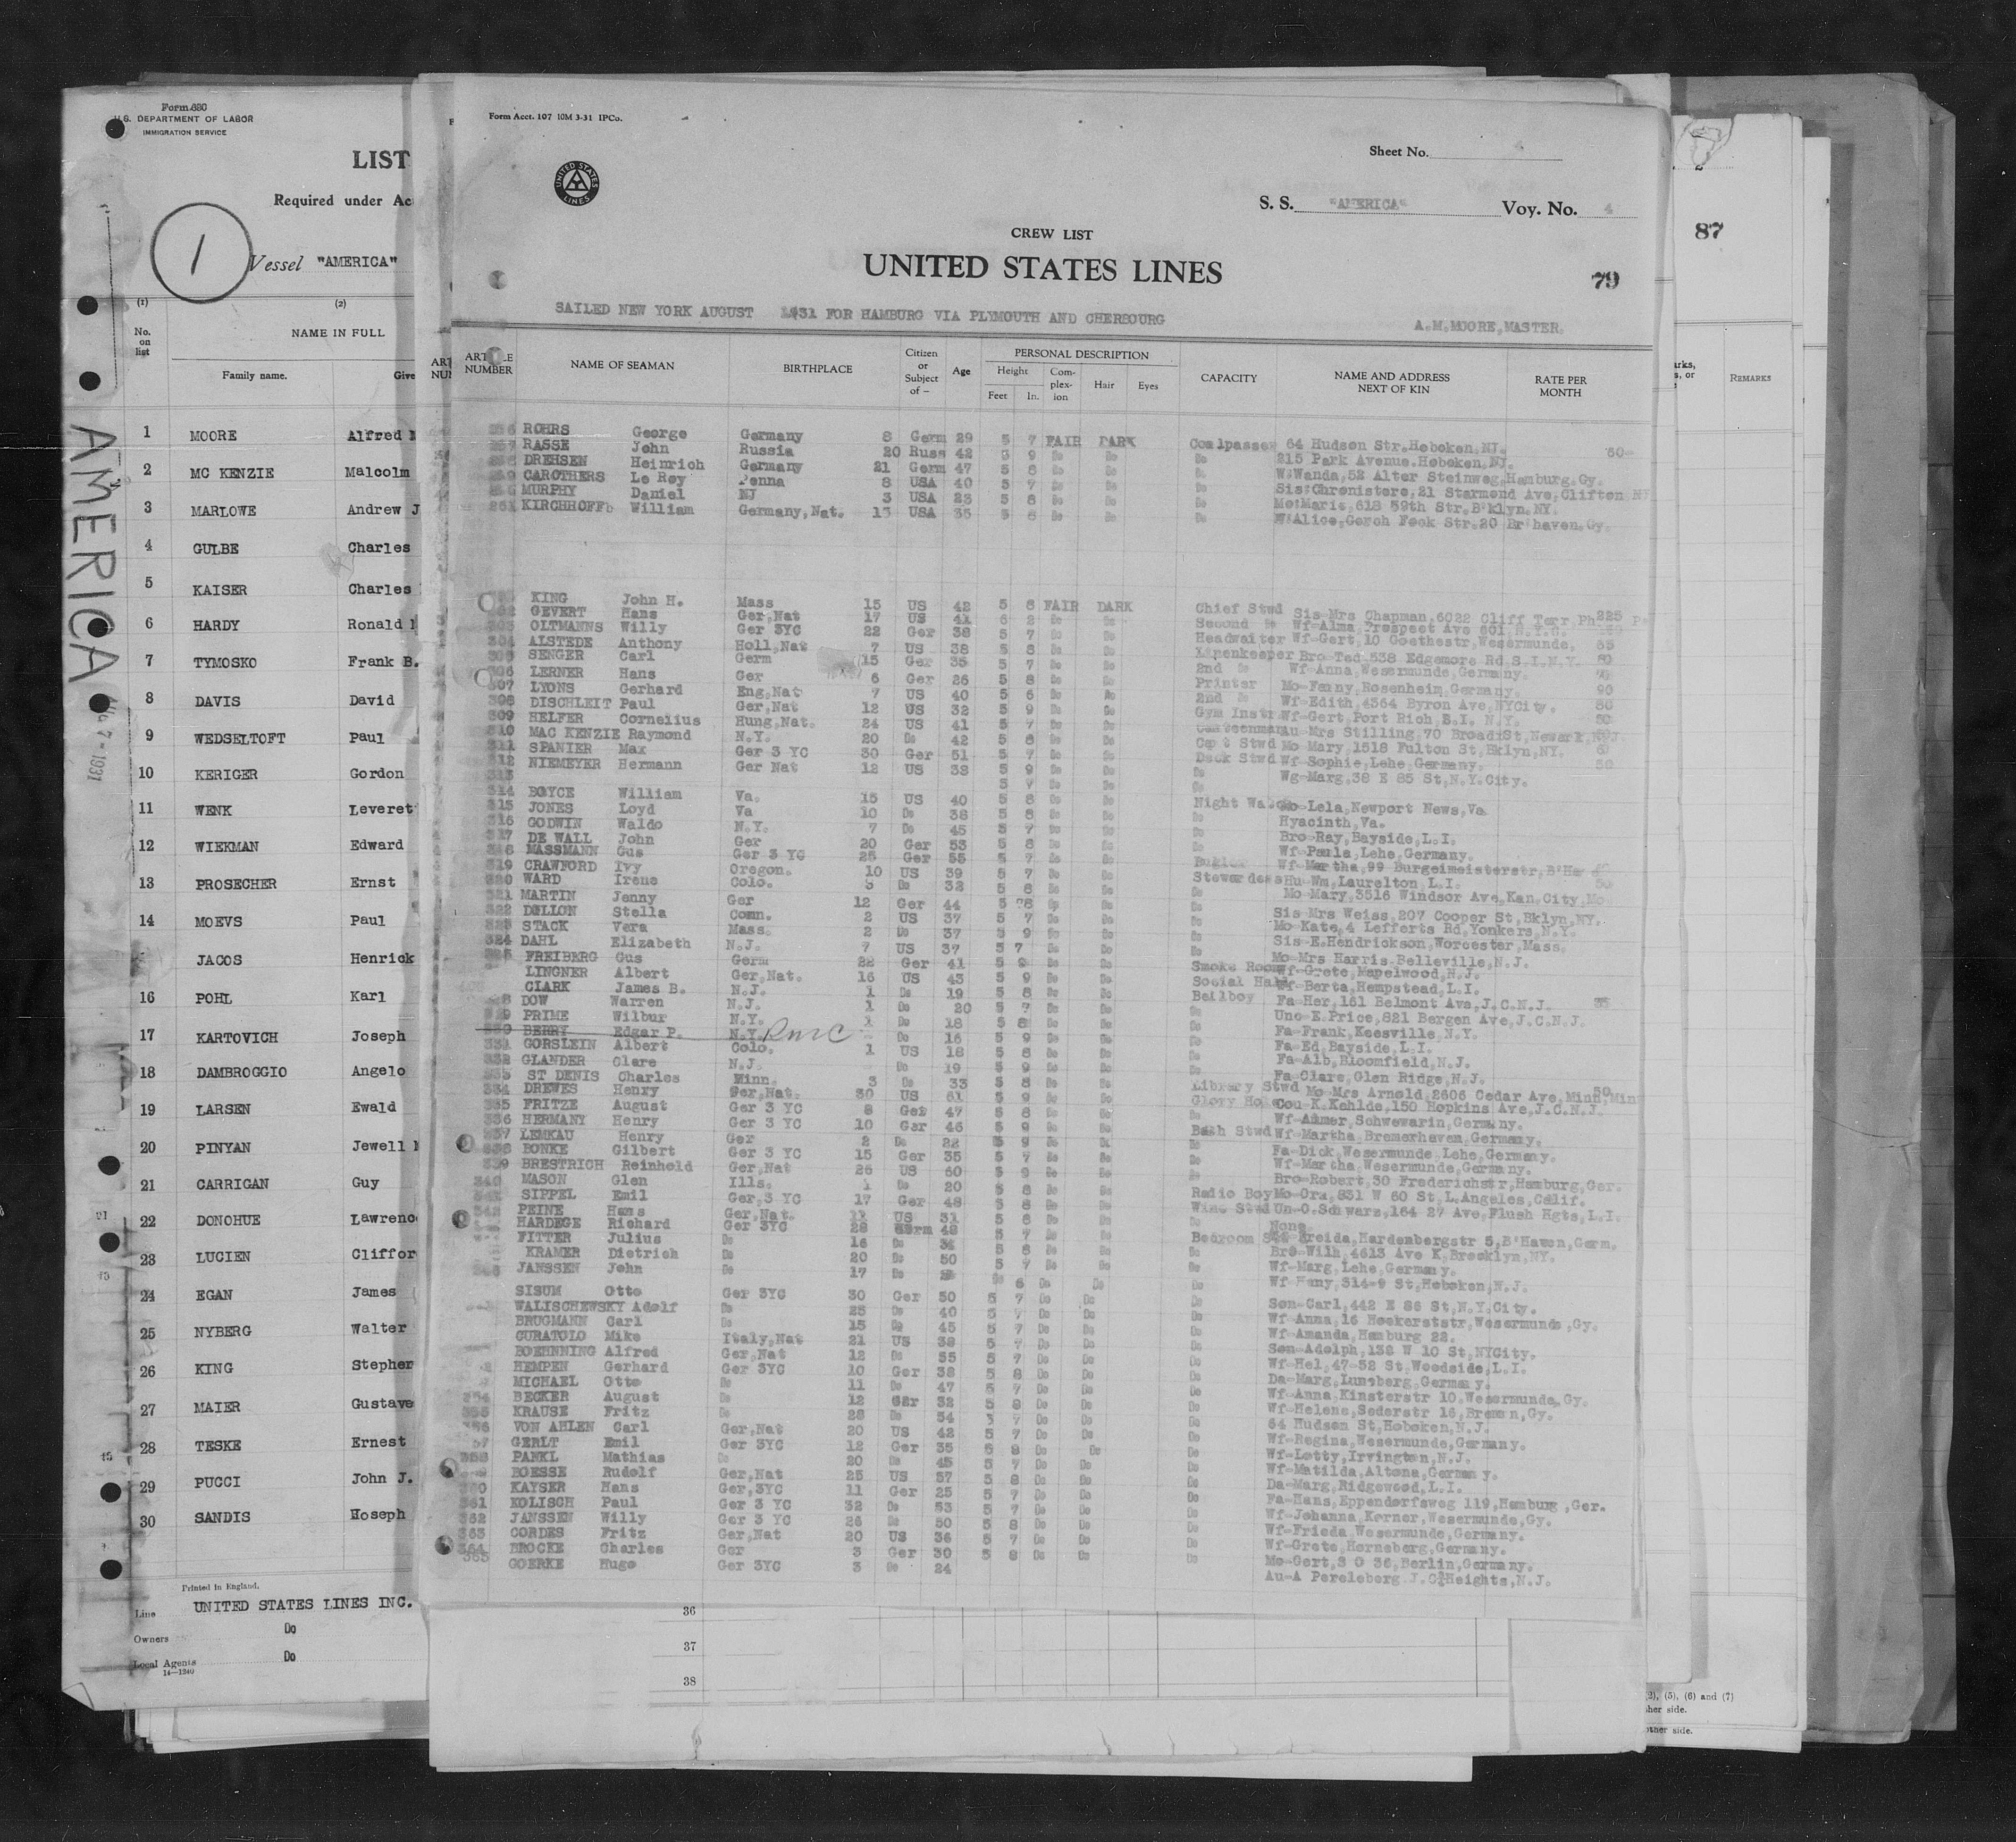 Form 680
U.S. DEPARTMENT OF LABOR
IMMIGRATION SERVICE
LIST
Required under Ac
1
Vessel "AMERICA"
(1) (2)
No. on list
NAME IN FULL
Family name. Give
1 MOORE Alfred
2 MC KENZIE Malcolm
3 MARLOWE Andrew J
4 GULBE Charles
5 KAISER Charles
6 HARDY Ronald
7 TYMOSKO Frank B.
8 DAVIS David
9 WEDSELTOFT Paul
10 KERIGER Gordon
11 WENK Leveret
12 WIEKMAN Edward
13 PROSECHER Ernst
14 MOEVS Paul
JACOS Henrick
16 POHL Karl
17 KARTOVICH Joseph
18 DAMBROGGIO Angelo
19 LARSEN Ewald
20 PINYAN Jewell
21 CARRIGAN Guy
22 DONOHUE Lawrenc
23 LUCIEN Cliffor
24 EGAN James
25 NYBERG Walter
26 KING Stepher
27 MAIER Gustave
28 TESKE Ernest
29 PUCCI John J.
30 SANDIS Hoseph
Printed in England.
Line UNITED STATES LINES INC.
Owners Do
Local Agents Do
14—1240
AMERICA
AUG 7-1931
Form Acct. 107 10M 3-31 IPCo.
Sheet No. 4
UNITED STATES LINES
S. S. "AMERICA" Voy. No. 4
CREW LIST
UNITED STATES LINES
79
SAILED NEW YORK AUGUST 1931 FOR HAMBURG VIA PLYMOUTH AND CHERBOURG
A.M.MOORE,MASTER.
ARTICLE NUMBER
NAME OF SEAMAN
BIRTHPLACE
Citizen or Subject of –
Age
PERSONAL DESCRIPTION
Height Feet In.
Complexion
Hair
Eyes
CAPACITY
NAME AND ADDRESS NEXT OF KIN
RATE PER MONTH
ROHRS George Germany 8 Germ 29 5 7 FAIR DARK Coalpasser 64 Hudson Str.Hoboken,NJ.
RASSE John Russia 20 Russ 42 9 Do Do Do 215 Park Avenue.Hoboken,NJ.
DREHSEN Heinrich Germany 21 Germ 47 5 8 Do Do Do W:Wanda,52 Alter Steinweg,Hamburg.Gy.
CAROTHERS Le Roy Penna 8 USA 40 5 7 Do Do Do Sis:Chronisters,21 Starmond Ave,Clifton
MURPHY Daniel NJ 3 USA 23 5 8 Do Do Do Mo:Marie,618 59th Str.B'klyn.NY.
KIRCHHOFF William Germany,Nat. 13 USA 35 5 8 Do Do Do W:Alice,Gorch Fock Str.20 Br'haven.Gy.
KING John H. Mass 15 US 42 5 8 FAIR DARK Chief Stwd Sis-Mrs Chapman,6022 Cliff Terr 225
GEVERT Hans Ger,Nat 17 US 41 6 2 Do Do Second Do Wf-Alma,Prospect Ave 601,N.Y.C.
OLTMANNS Willy Ger 3YC 22 Ger 38 5 7 Do Do Headwaiter Wf-Gert,10 Goethestr,Wesermunde,
ALSTEDE Anthony Holl,Nat 7 US 38 5 8 Do Do Linenkeeper Bro-Ted 538 Edgemore Rd,S.I.N.Y.
SENGER Carl Germ 15 Ger 35 5 7 Do Do 2nd Do Wf-Anna,Wesermunde,Germany.
306 LERNER Hans Ger 6 Ger 26 5 8 Do Do Printer Mo-Fanny,Rosenheim,Germany. 90
307 LYONS Gerhard Eng,Nat 7 US 40 5 6 Do Do 2nd Do Wf-Edith,4364 Byron Ave,NYCity.
308 DISCHLEIT Paul Ger,Nat 12 US 32 5 9 Do Do Gym Instr Wf-Gert,Port Rich,S.I. N.Y.
309 HELFER Cornelius Hung,Nat. 24 US 41 5 7 Do Do Au-Mrs Stilling,70 Broad St,Newark,N.J.
310 MAC KENZIE Raymond N.Y. 20 Do 42 5 8 Do Do Stwd Mo Mary,1518 Fulton St,Bklyn,NY.
311 SPANIER Max Ger 3 YC 30 Ger 51 5 7 Do Do Deck Stwd Wf-Sophie,Lehe,Germany.
312 NIEMEYER Hermann Ger Nat 12 US 38 5 9 Do Do Do Wg-Marg,38 E 85 St,N.Y.City.
313 5 7 Do Do
314 BOYCE William Va. 15 US 40 5 8 Do Do Night Mo-Lela,Newport News,Va.
315 JONES Loyd Va 10 Do 38 5 8 Do Do Do Hyacinth,Va.
316 GODWIN Waldo N.Y. 7 Do 45 5 7 Do Do Do Bro-Ray,Bayside,L.I.
317 DE WALL John Ger 20 Ger 53 5 8 Do Do Do Wf-Paula,Lehe,Germany.
318 MASSMANN Gus Ger 3 YC 25 Ger 55 5 7 Do Do Wf-Martha,99 Burgeimeisterstr,
319 CRAWFORD Ivy Oregon. 10 US 39 5 7 Do Do Stewardess Hu-Wm,Laurelton,L.I.
320 WARD Irene Colo. Do 32 5 8 Do Do Do Mo-Mary,3516 Windsor Ave,Kan.City,Mo
321 MARTIN Jenny Ger 12 Ger 44 5 8 Do Do Do Sis-Mrs Weiss,207 Cooper St,Bklyn,NY.
322 DILLON Stella Conn. 2 US 37 5 7 Do Do Do Mo-Kate,4 Lefferts Rd,Yonkers,N.Y.
323 STACK Vera Mass. 2 Do 37 5 9 Do Do Do Sis-E.Hendrickson,Worcester,Mass.
324 DAHL Elizabeth N.J. 7 US 37 5 7 Do Do Do Mo-Mrs Harris-Belleville,N.J.
325 FREIBERG Gus Germ 22 Ger 41 5 Do Do Smoke Room Wf-Grete,Mapelwood,N.J.
LINGNER Albert Ger,Nat. 16 US 43 5 9 Do Do Social Hall Wf-Berta,Hempstead,L.I.
CLARK James B. N.J. 1 Do 19 5 8 Do Do Bellboy Fa-Her,161 Belmont Ave,J.C.N.J. 35
DOW Warren N.J. 1 Do 20 5 7 Do Do Do Unc-E.Price,821 Bergen Ave,J.C.N.J.
PRIME Wilbur N.Y. Do 18 5 8 Do Do Do Fa-Frank,Keesville,N.Y.
BERRY Edgar P. N.Y. Do 16 5 9 Do Do Do Fa-Ed,Bayside,L.I.
331 GORSLEIN Albert Colo. 1 US 18 5 8 Do Do Do Fa-Alb,Bloomfield,N.J.
332 GLANDER Clare N.J. Do 19 5 9 Do Do Do Fa-Clare,Glen Ridge,N.J.
333 ST DENIS Charles Minn. 3 Do 33 5 8 Do Do Library Stwd Mo-Mrs Arnold,2606 Cedar Ave, 50
334 DREWES Henry Ger,Nat. 30 US 61 5 9 Do Do Glory Hole Cou-K.Kehlde,150 Hopkins Ave,J.C.N.J.
335 FRITZE August Ger 3 YC 8 Ger 47 5 8 Do Do Do Wf-Ahmer,Schwewarin,Germany.
336 HERMANY Henry Ger 3 YC 10 Ger 46 5 9 Do Do Bath Stwd Wf-Martha,Bremerhaven,Germany.
337 LEMKAU Henry Ger 2 Do 22 5 9 Do Do Do Fa-Dick,Wesermunde Lehe,Germany.
338 BONKE Gilbert Ger 3 YC 15 Ger 35 5 7 Do Do Do Wf-Martha,Wesermunde,Germany.
339 BRESTRICH Reinhold Ger,Nat 26 US 60 5 9 Do Do Do Bro-Robert,30 Frederichstr,Hamburg,Ger.
340 MASON Glen Ills. 1 Do 20 5 8 Do Do Radio Boy Mo-Ora,831 W 60 St,L.Angeles,Calif.
SIPPEL Emil Ger,3 YC 17 Ger 48 8 Do Do Wine Stwd Un-O.Schwarz,164 27 Ave,Flush Hgts,L.I.
342 PEINE Hans Ger,Nat. US 31 5 8 Do Do Do None
HARDEGE Richard Ger 3YC 28 Germ 48 5 7 Do Do Bedroom Breida,Hardenbergstr 5,B'Haven,Germ.
FITTER Julius Do 16 Do 5 8 Do Do Do Bro-Wilh,4613 Ave K,Brooklyn,NY.
KRAMER Dietrich Do 20 Do 50 5 7 Do Do Do Wf-Marg,Lehe,Germany.
JANSSEN John Do 17 Do 6 Do Do Do Wf-Hany,314-9 St,Hoboken,N.J.
SISUM Otto Ger 3YC 30 Ger 50 5 7 Do Do Do Son-Carl,442 E 86 St,N.Y.City.
WALISCHEWSKY Adolf Do 25 Do 40 5 7 Do Do Do Wf-Anna,16 Hookerststr,Wesermunde,Gy.
BRUGMANN Carl Do 15 Do 45 5 7 Do Do Do Wf-Amanda,Hamburg 22.
CURATOLO Mike Italy,Nat 21 US 38 5 7 Do Do Do Son-Adolph,132 W 10 St,NYCity.
BOEHNNING Alfred Ger,Nat 12 Do 55 5 7 Do Do Do Wf-Hel,47-52 St.Woodside,L.I.
HEMPEN Gerhard Ger 3YC 10 Ger 38 5 8 Do Do Do Da-Marg,Lunsberg,Germany.
MICHAEL Otto Do 11 Do 47 5 7 Do Do Do Wf-Anna,Kinsterstr 10,Wesermunde,Gy.
354 BECKER August Do 12 Ger 32 5 8 Do Do Do Wf-Helene,Sederstr 16,Bremen,Gy.
355 KRAUSE Fritz Do 28 Do 54 7 Do Do Do 64 Hudson St,Hoboken,N.J.
356 VON AHLEN Carl Ger,Nat 20 US 42 5 7 Do Do Do Wf-Regina,Wesermunde,Germany.
57 GERLT Emil Ger 3YC 12 Ger 35 5 8 Do Do Do Wf-Lotty,Irvington,N.J.
358 PANKL Mathias Do 20 Do 45 5 7 Do Do Do Wf-Matilda,Altona,Germany.
BOESSE Rudolf Ger,Nat 25 US 57 5 8 Do Do Do Da-Marg,Ridgewood,L.I.
360 KAYSER Hans Ger,3YC 11 Ger 25 5 7 Do Do Do Fa-Hans,Eppendorfsweg 119,Hamburg,Ger.
361 KOLISCH Paul Ger 3 YC 32 Do 53 5 7 Do Do Do Wf-Johanna Kerner,Wesermunde,Gy.
362 JANSSEN Willy Ger 3 YC 26 Do 50 5 8 Do Do Do Wf-Frieda,Wesermunde,Germany.
363 CORDES Fritz Ger,Nat 20 US 36 5 7 Do Do Do Wf-Grete,Horneberg,Germany.
364 BROCKE Charles Ger 3 Ger 30 5 8 Do Do Do Mo-Gert,S O 36,Berlin,Germany.
365 GOERKE Hugo Ger 3YC 3 Do 24 Au-A Pereleberg J.C.Heights,N.J.
36
37
38
87
REMARKS
(2), (5), (6) and (7)
her side.
other side.